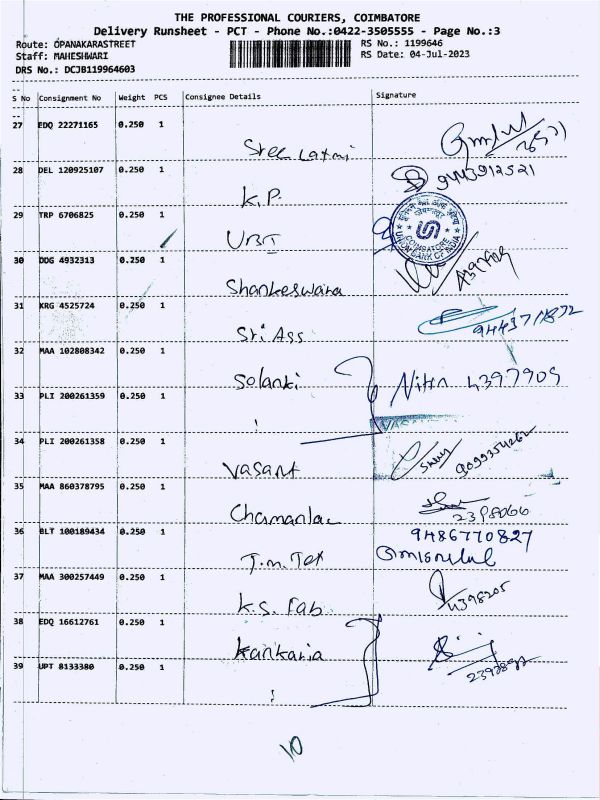 THE PROFESSIONAL COURIERS, COIMBATORE
Delivery Runsheet - PCT - Phone No.:0422-3505555 - Page No.:3
Route: OPANAKARASTREET
Staff: MAHESHWARI
DRS No.: DCJB119964603
RS No.: 1199646
RS Date: 04-Jul-2023
S No Consignment No Weight PCS Consignee Details Signature
27 EDQ 22271165 0.250 1
Sree Laxmi
28 DEL 120925107 0.250 1
K.P. 9443912521
29 TRP 6706825 0.250 1
UBI
COIMBATORE
UNION BANK OF INDIA
30 DDG 4932313 0.250 1
Shankeswara
31 KRG 4525724 0.250 1
Sri Ass
32 MAA 102808342 0.250 1
Solanki Nitin 4397909
33 PLI 200261359 0.250 1
VAS
34 PLI 200261358 0.250 1
Vasant
35 MAA 860378795 0.250 1
Chamanlal
36 BLT 100189434 0.250 1
9486770827
J.M. Tex
37 MAA 300257449 0.250 1
K.S. Fab 4398205
38 EDQ 16612761 0.250 1
Kankaria
39 UPT 8133380 0.250 1
10